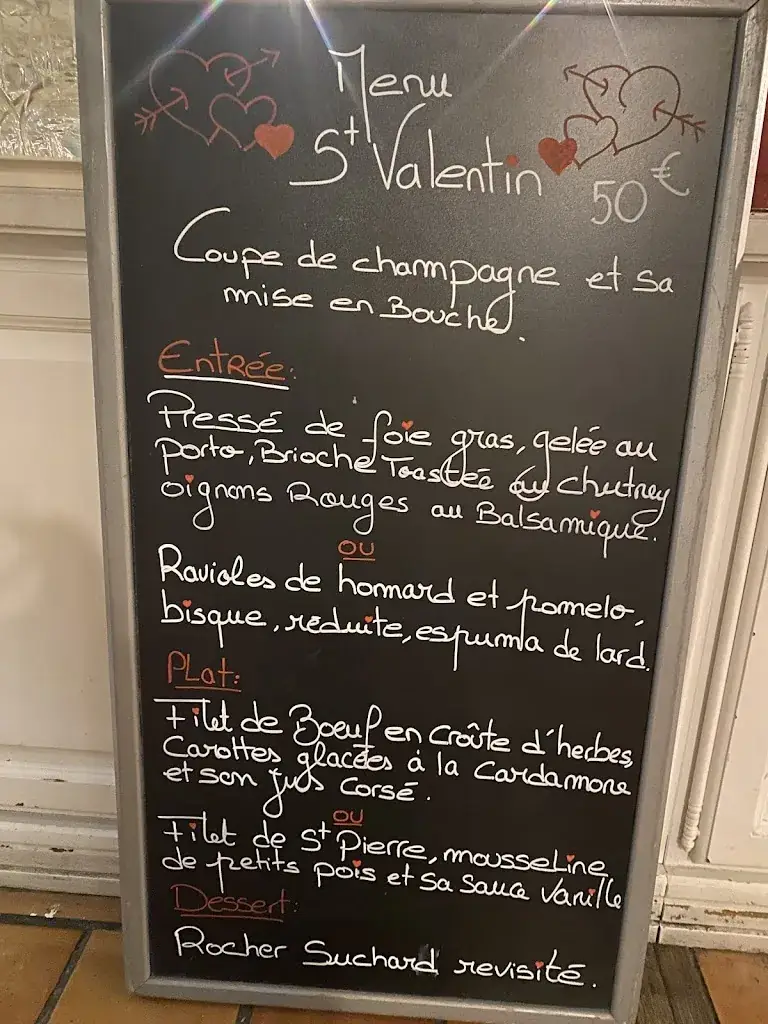 Menu
St Valentin
50€
Coupe de champagne et sa
mise en Bouche.
Entrée:
Pressé de foie gras, gelée au
porto, Brioche Toastée au chutney
oignons Rouges au Balsamique.
ou
Ravioles de homard et pomelo,
bisque, réduite, espuma de lard.
Plat:
Filet de Boeuf en croûte d'herbes,
Carottes glacées à la Cardamone
et son jus corsé.
ou
Filet de St Pierre, mousseline
de petits pois et sa sauce Vanille
Dessert:
Rocher Suchard revisité.